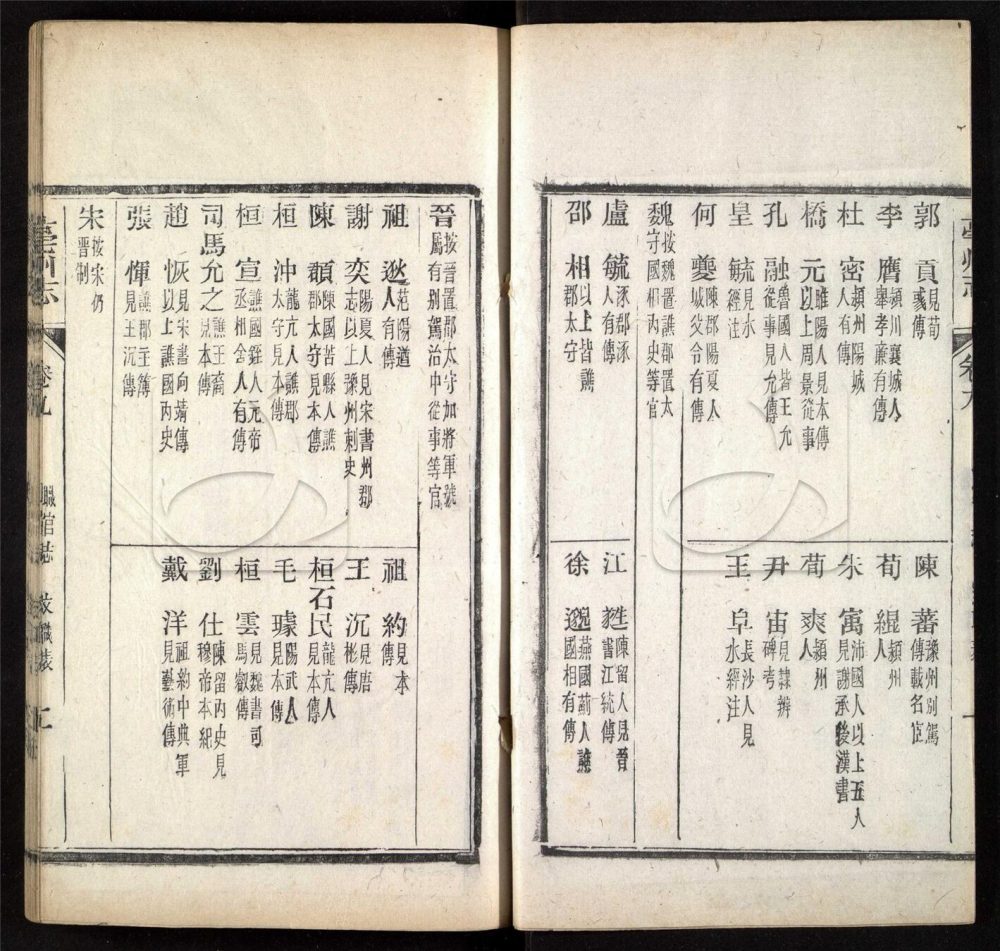 亳州志 卷九
郭貢 見荀彧傳
李膺 潁川襄城人舉孝廉有傳
杜密 潁州陽城人有傳
橋元 睢陽人見本傳以上周景從事
孔融 魯國人皆王允從事見允傳
皇 流見水經注
何夔 陳郡陽夏人城父令有傳
陳蕃 豫州別駕傳載名宦
荀緄 潁州人
朱寓 沛國人以上五人見謝承後漢書
荀爽 潁州人
尹宙 見隸辨碑考
王阜 長沙人見水經注
魏 按魏置譙郡置太守國相內史等官
盧毓 涿郡涿人有傳
邵相 以上皆譙郡太守
江蕤 陳留人見晉書江統傳
徐邈 燕國薊人譙國相有傳
晉 按晉置郡太守加將軍號屬有別駕治中從事等官
祖逖 范陽遒人有傳
謝奕 陽夏人見宋書州郡志以上豫州刺史
陳頵 陳國苦縣人譙郡太守見本傳
桓沖 龍亢人譙郡太守見本傳
桓宣 譙國銍人元帝丞相舍人有傳
司馬允之 譙王裔見本傳
趙恢 見宋書向靖傳以上譙國內史
張惲 譙郡主簿見王沉傳
祖約 見本傳
王沉 見唐彬傳
桓石民 龍亢人見本傳
毛璩 陽武人見本傳
桓雲 見魏書司馬叡傳
劉仕 陳留內史見穆帝本紀
戴洋 祖約中典軍見藝術傳
宋 按宋仍晉制
亳州志 卷九 職官志 文職表